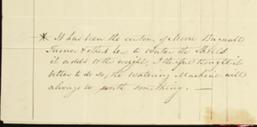 * It has been the custom of Messrs Bagnall
Turner & others here to water the Shells
it adds to the weight, I therefore thought it
better to do so, the Watering Machine will
always be worth something. —